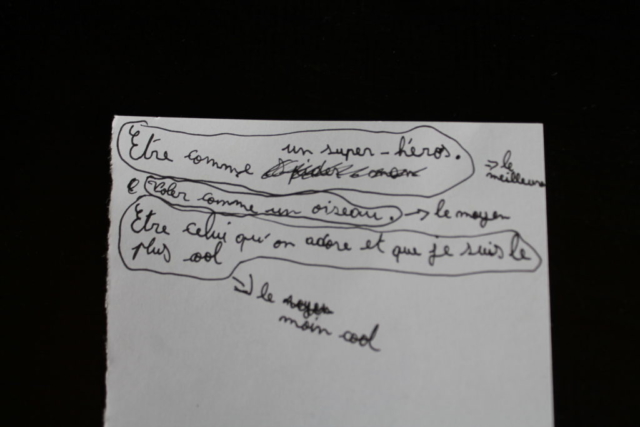 Etre comme un super-héros. → le meilleure
Voler comme un oiseau. → le moyen
Etre celui qu'on adore et que je suis le
plus cool
→ le
moin cool